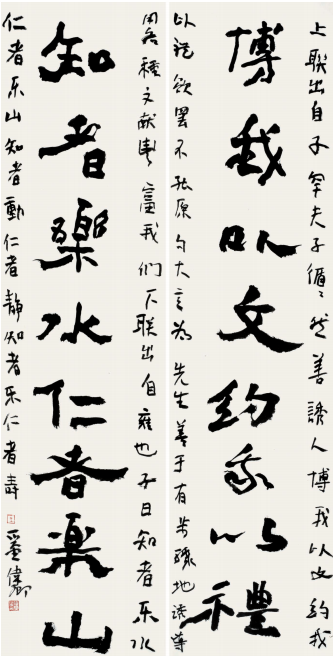 上联出自子罕夫子循循然善誘人博我以文约我
博我以文约我以禮
以礼欲罢不能原句大意为先生善于有步骤地诱导
用各種文献豐富我们下联出自雍也子曰知者乐水
知者樂水仁者樂山
仁者乐山知者動仁者静知者乐仁者壽